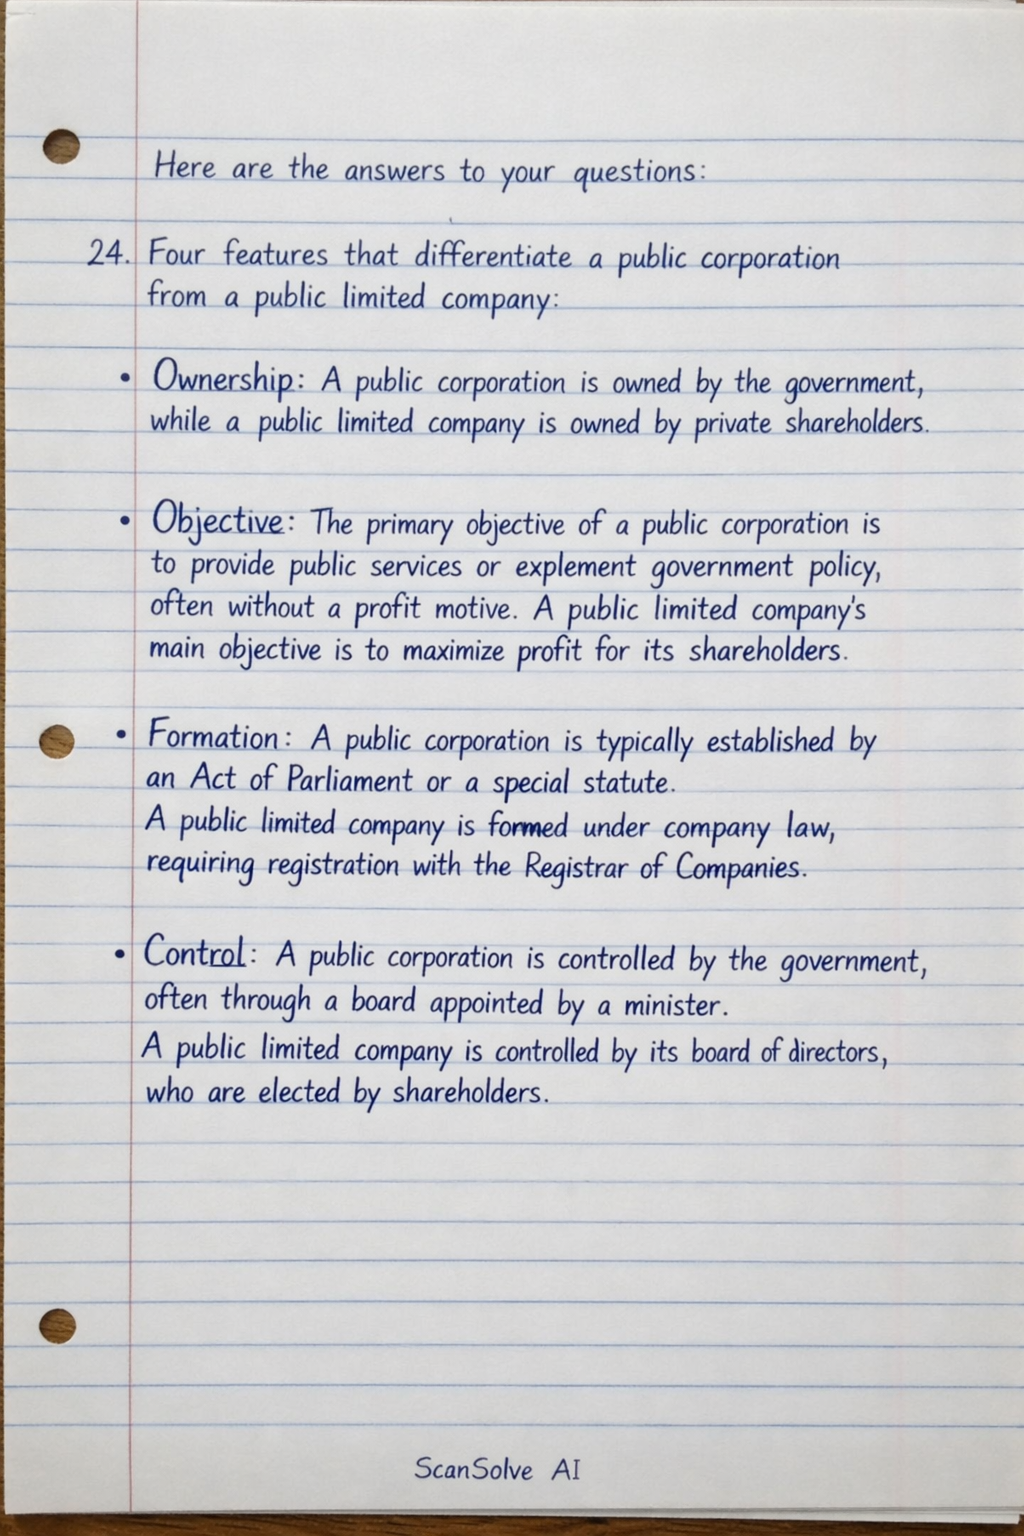 Here are the answers to your questions:
24. Four features that differentiate a public corporation
from a public limited company:
• Ownership: A public corporation is owned by the government,
while a public limited company is owned by private shareholders.
• Objective: The primary objective of a public corporation is
to provide public services or explement government policy,
often without a profit motive. A public limited company's
main objective is to maximize profit for its shareholders.
• Formation: A public corporation is typically established by
an Act of Parliament or a special statute.
A public limited company is formed under company law,
requiring registration with the Registrar of Companies.
• Control: A public corporation is controlled by the government,
often through a board appointed by a minister.
A public limited company is controlled by its board of directors,
who are elected by shareholders.
ScanSolve AI